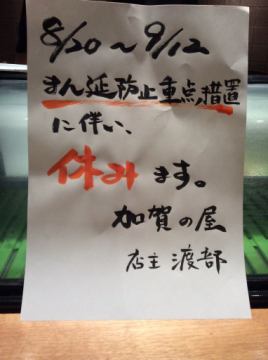 8/20〜9/12
まん延防止重点措置
に伴い、
休みます。
加賀の屋
店主 渡部